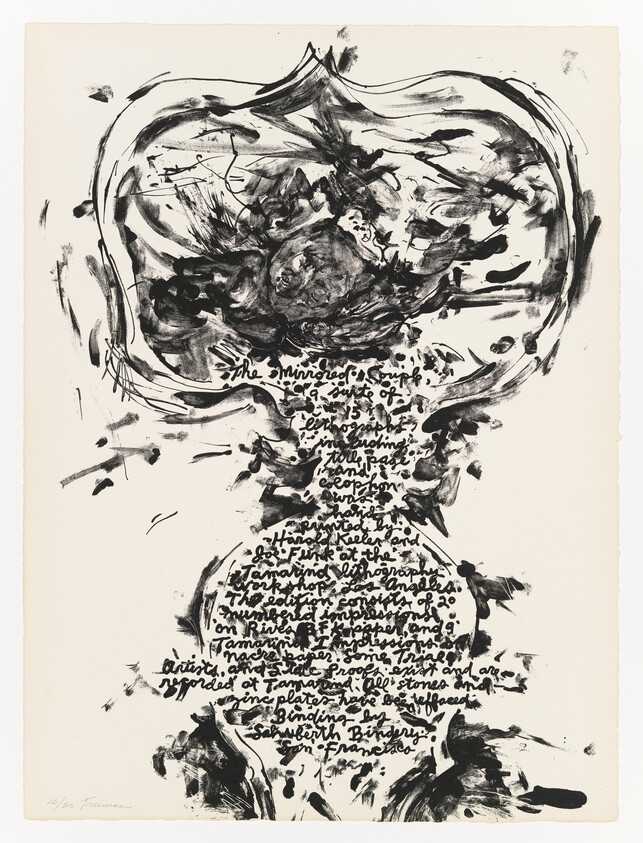 The Mirrored Couple,
a suite of
15
lithographs
including
title page
and
colophon
was
hand
printed by
Harold Keeler and
Joe Funk at the
Tamarind lithography
workshop Los Angeles.
The edition consists of 20
numbered impressions
on Rives BFK paper, and 9
Tamarind impressions on
nacre paper. Some Trial,
Artists, and State Proofs exist and are
recorded at Tamarind. All stones and
zinc plates have been effaced.
Binding by
Schuberth Bindery.
San Francisco
10/20